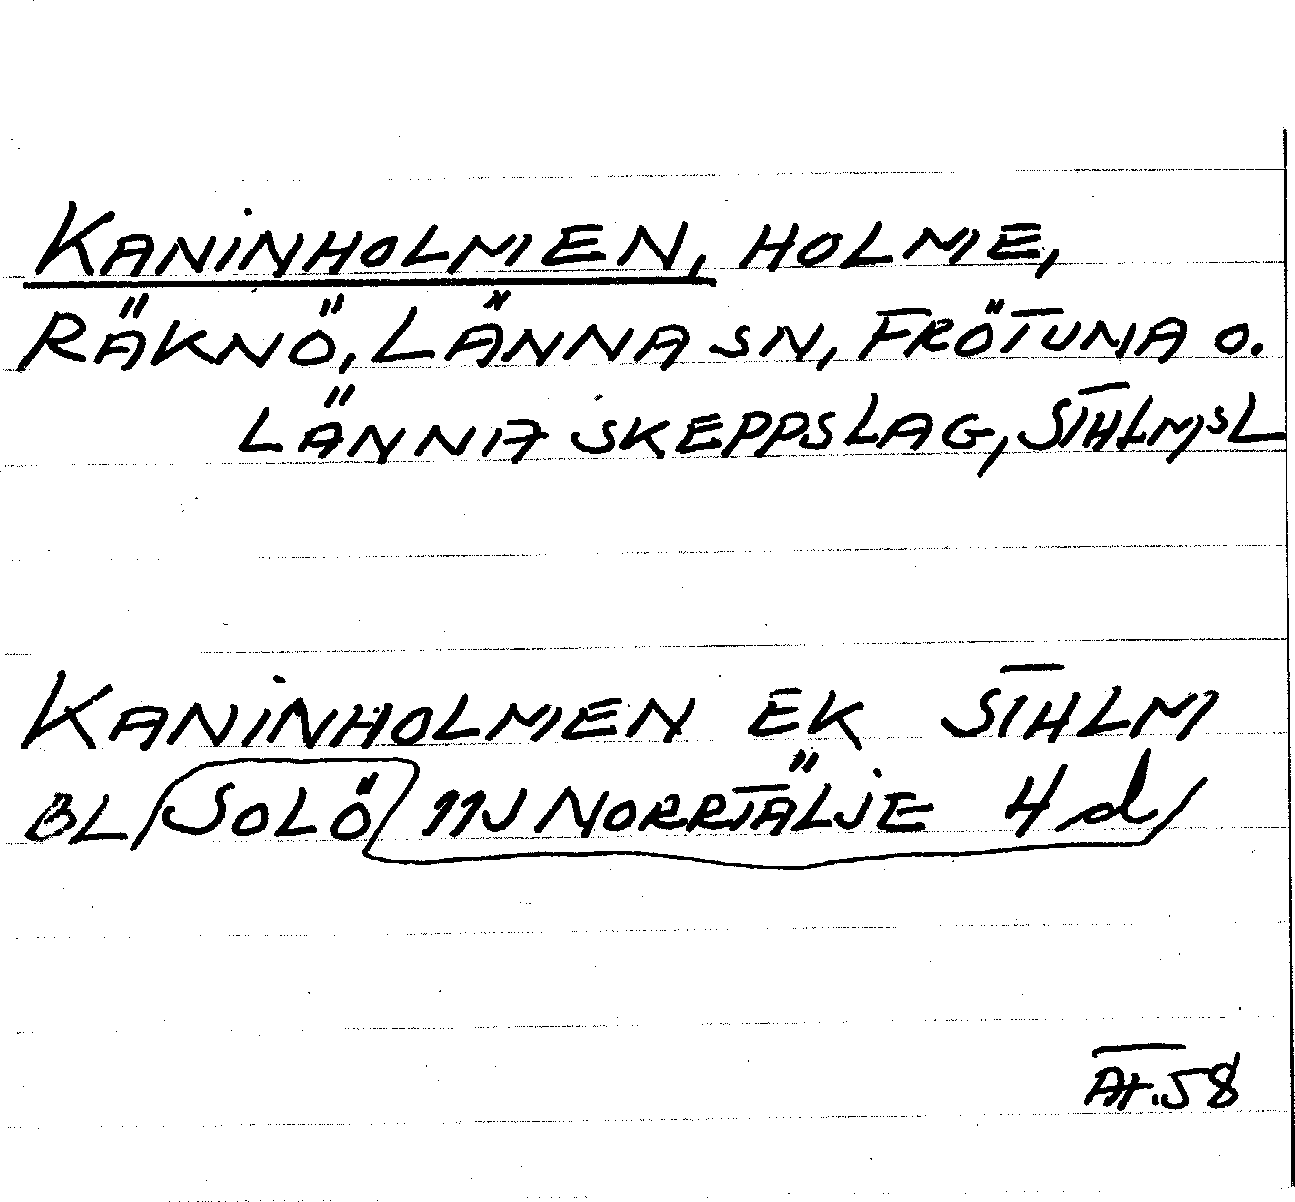 KANINHOLMEN, HOLME,
RÄKNÖ, LÄNNA SN, FRÖTUNA O.
LÄNNA SKEPPSLAG, STHLMSL
KANINHOLMEN EK STHLM
BL/SOLÖ/11J NORRTÄLJE 4d/
At.58